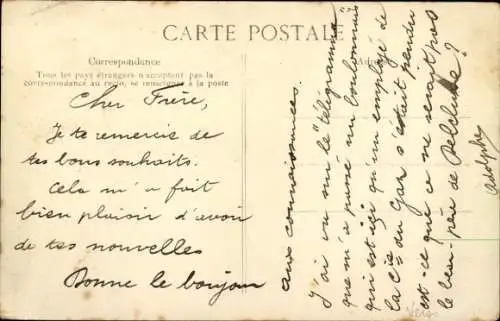 CARTE POSTALE
Correspondance
Adresse
Tous les pays étrangers n'acceptent pas la
correspondance au recto, se renseigner à la poste
Cher Frère,
Je te remercie de
tes bons souhaits.
Cela m'a fait
bien plaisir d'avoir
de tes nouvelles
Donne le bonjour
aux connaissances.
J'ai vu sur le "télégramme"
que m'a passé mu
qui est ici qu'un employé de
la Cie du Gaz s'était pendu
est-ce que ce ne serait pas
le beau-père de Delcluse ?
Adolphe
Verso